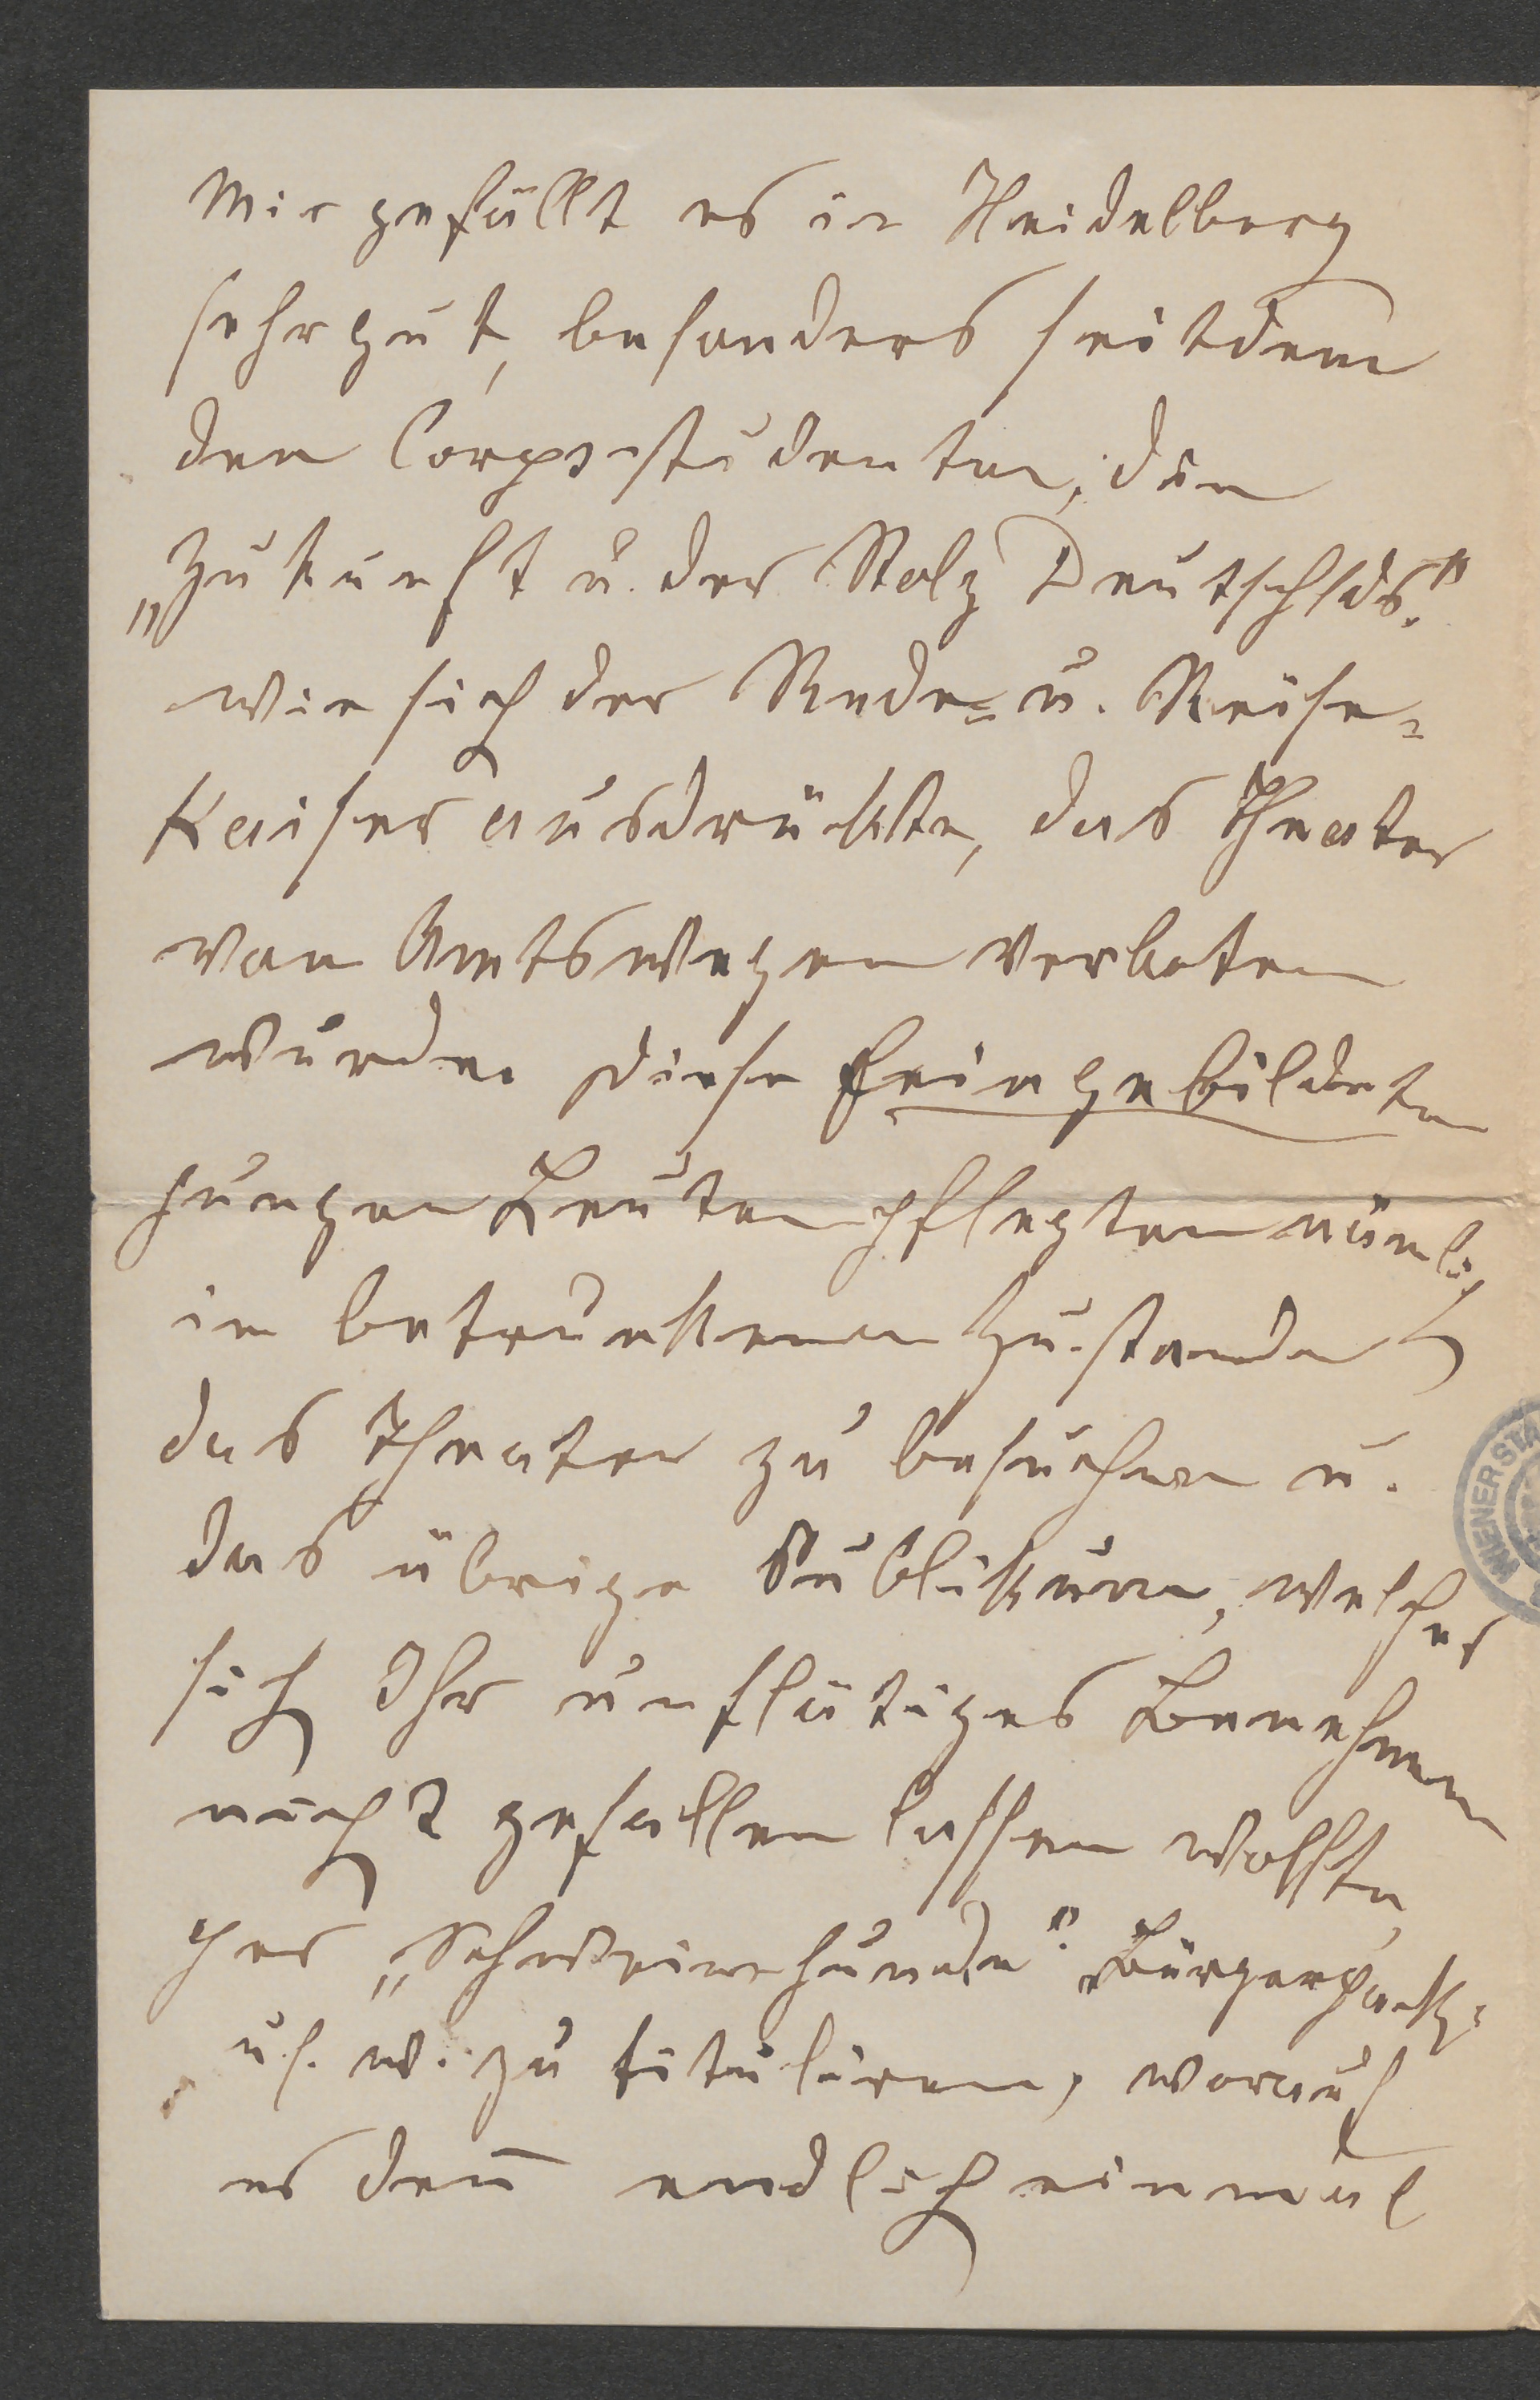 Mir gefällt es in Heidelberg
sehr gut, besonders seitdem
den Corpsstudenten, den
„Zukunft u. der Stolz Deutschlds."
wie sich der Rede- u. Reise-
Kaiser ausdrückte, das Theater
von Amtswegen verboten
wurde. Diese feingebildeten
jungen Leuten pflegten nämlich
im betrunkenen Zustande
das Theater zu besuchen u.
das übrige Publikum, welches
sich Ihr unflätiges Benehmen
nicht gefallen lassen wollte,
per „Schweinehunde" „Bürgerpack"
u. s. w. zu tituliren, worauf
es deñ endlich einmal
WIENER STA